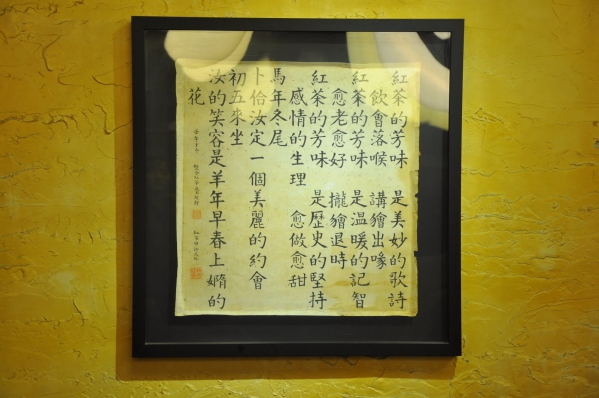 紅茶的芳味 是美妙的歌詩
飲會落喉 講𣍐出喙
紅茶的芳味 是溫暖的記智
愈老愈好 攏𣍐退時
紅茶的芳味 是歷史的堅持
感情的生理 愈做愈甜
馬年冬尾
卜佮汝定一個美麗的約會
初五來坐
汝的笑容是羊年早春上媠的
花